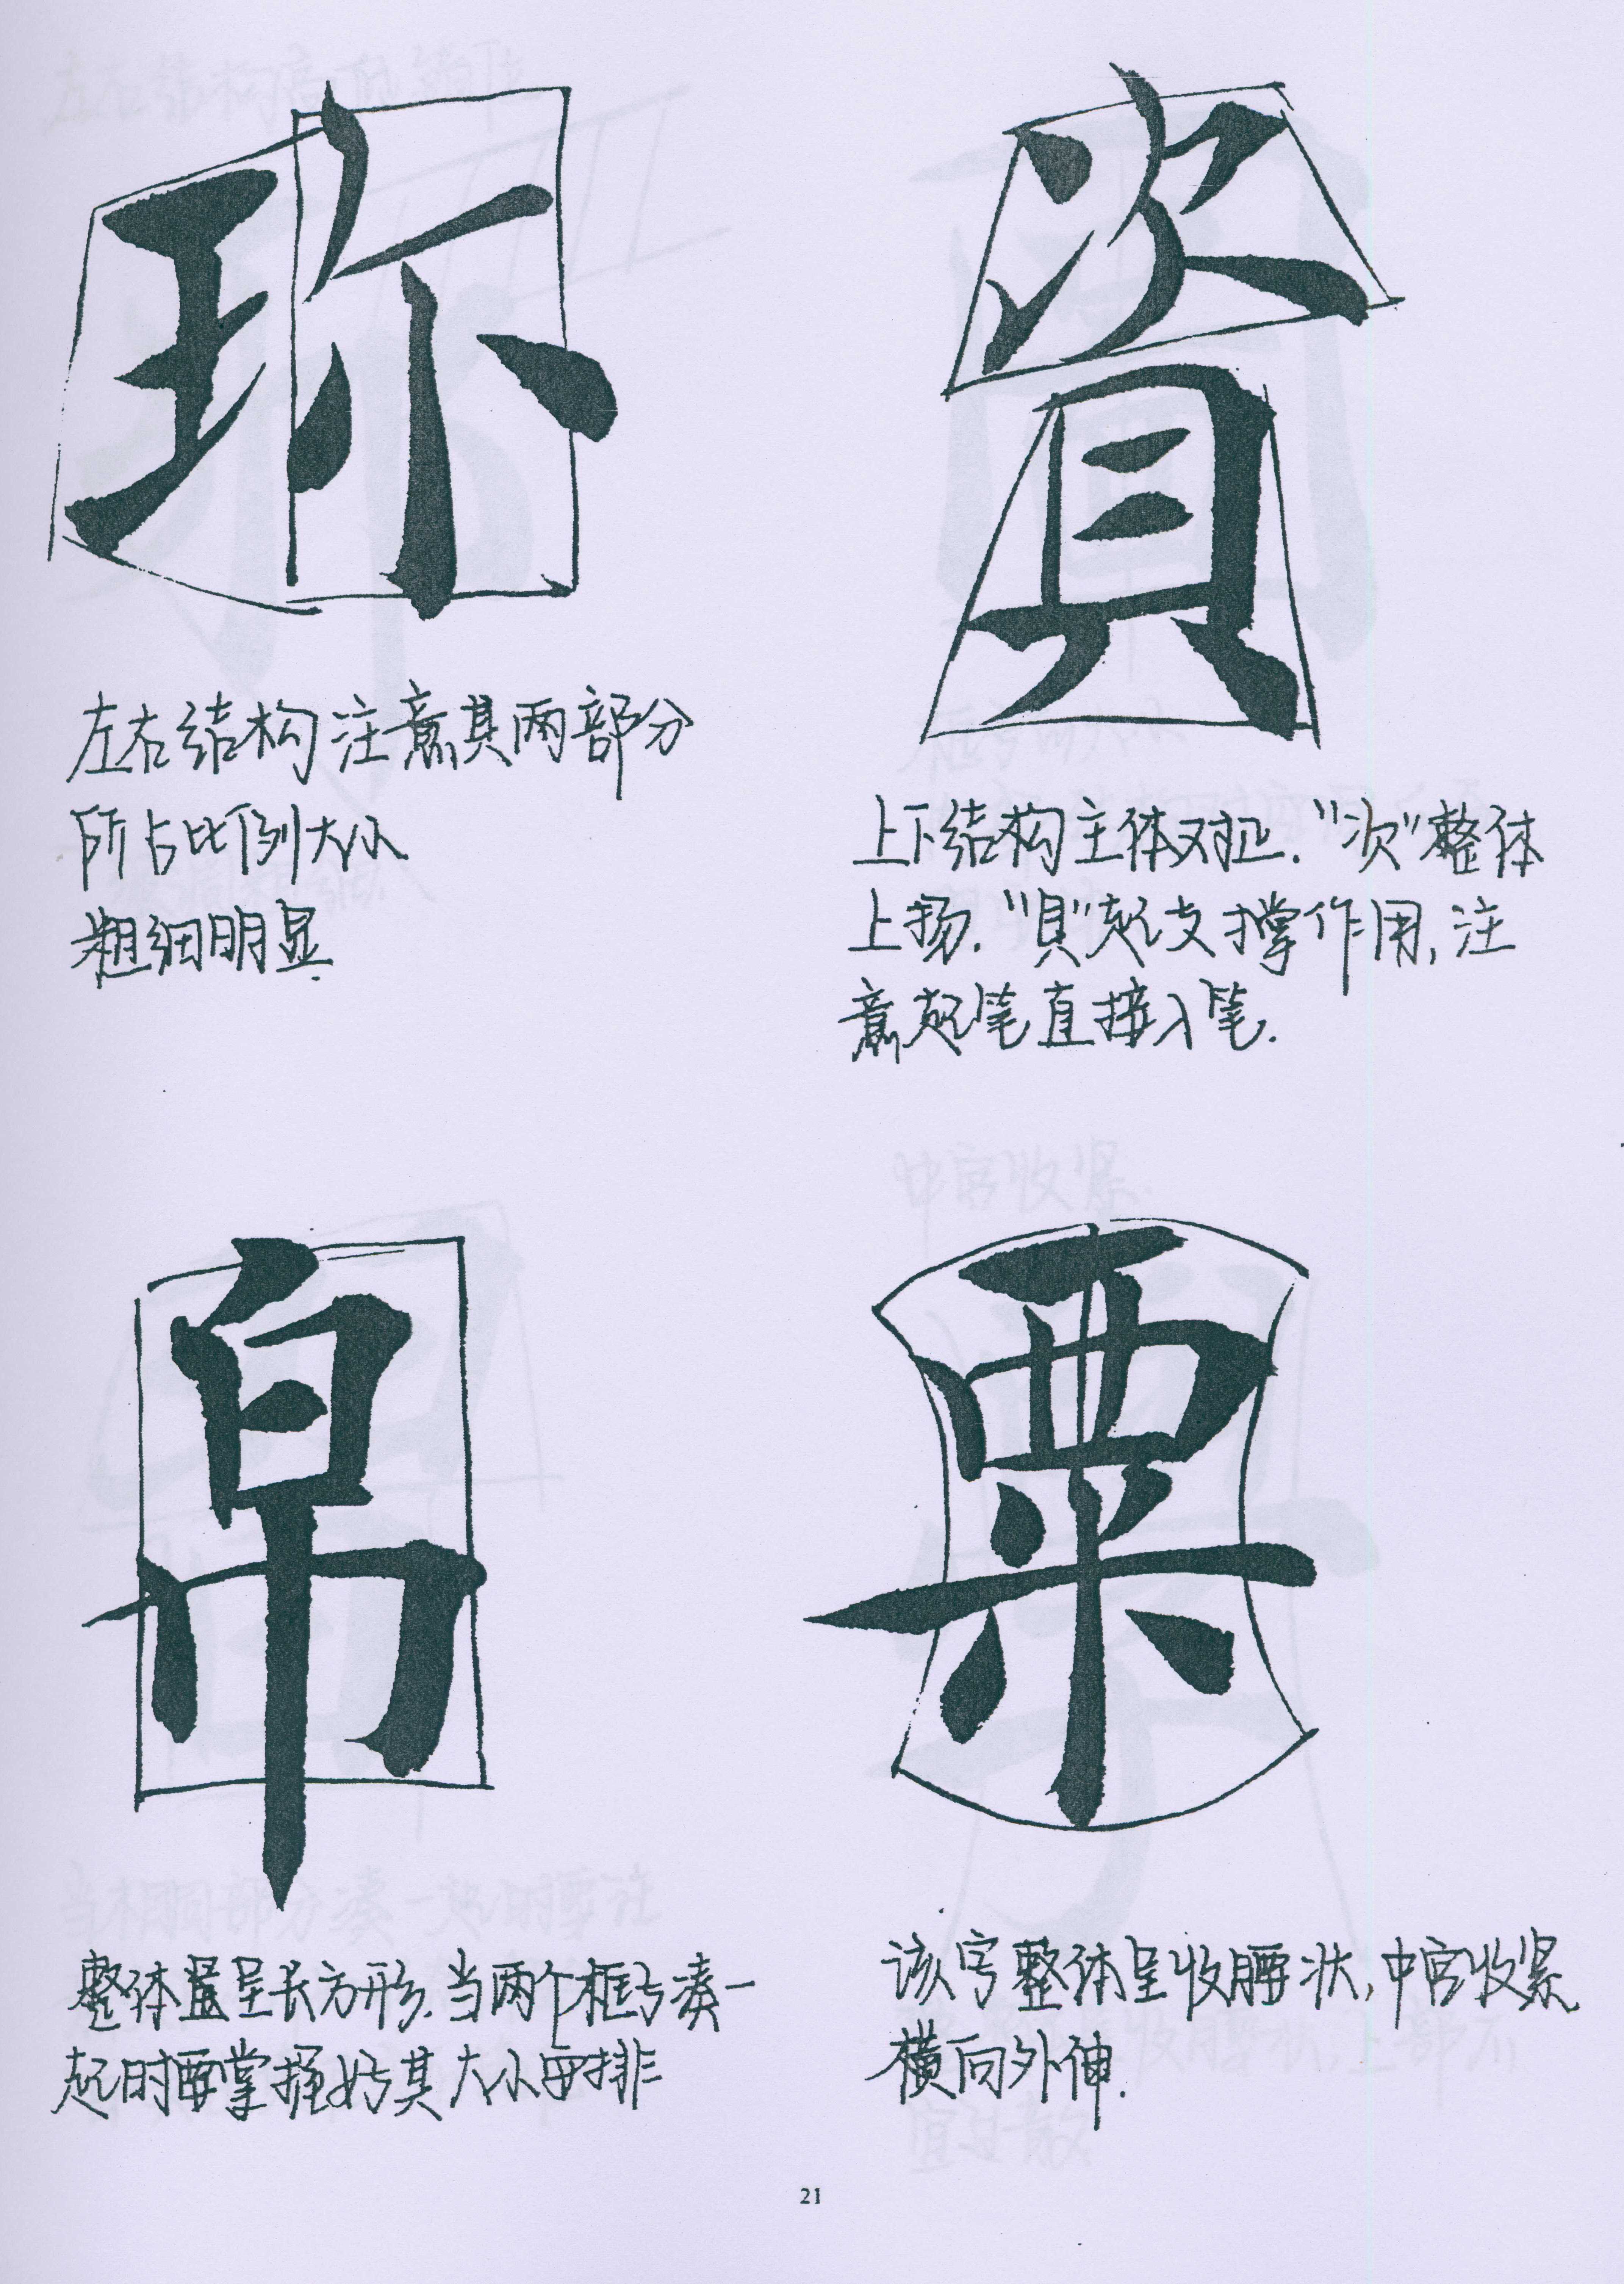 珎
左右结构注意其两部分
所占比例大小
粗细明显.
資
上下结构主体对正."次"整体
上扬."貝"起支撑作用,注
意起笔直接入笔.
帛
整体呈长方形.当两个框与凑一
起时要掌握好其大小安排
粟
该字整体呈收腰状,中宫收紧
横向外伸.
21